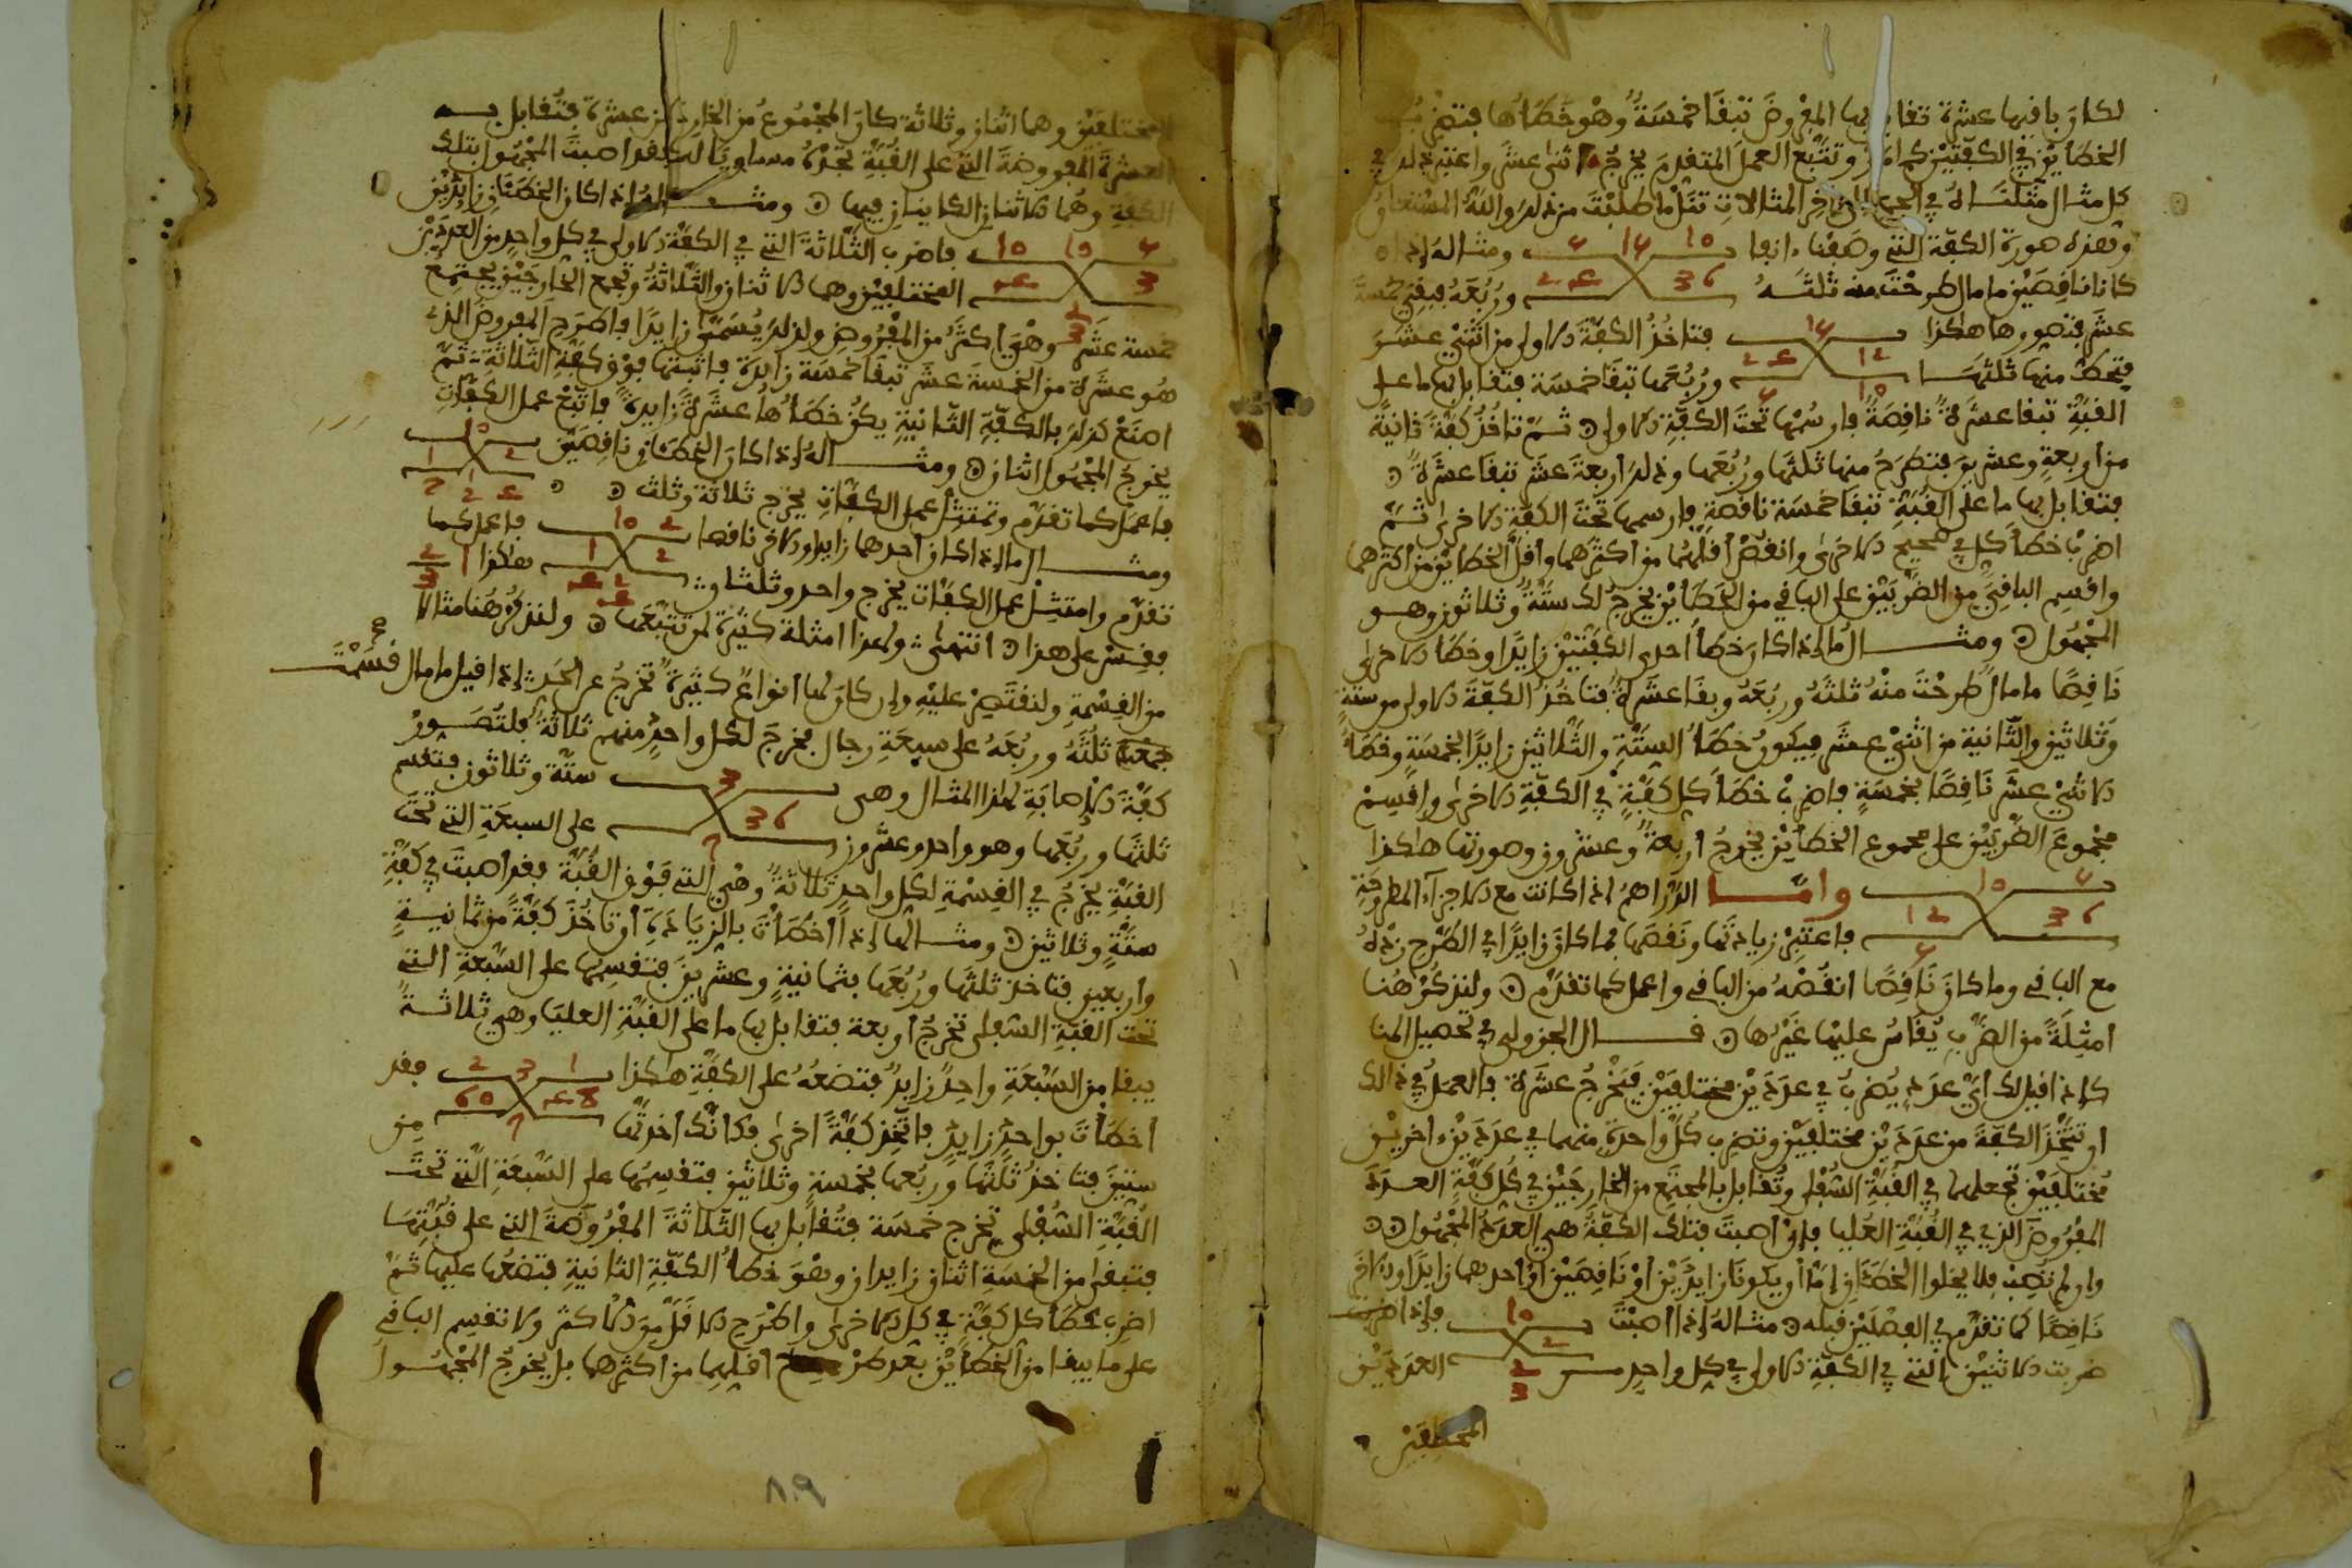 لكان باقيها عشرة تقابل بها المفروض تبقا خمسة وهو خطاها فتضرب
الخطأين في الكفتين كما مر وتتبع العمل المتقدم يخرج اثنى عشر واعتبر ذلك في
كل مثال مثلناه في المثالات تنل ما طلبت من ذلك والله المستعان
وهذه صورة الكفة التي وصفنا انفا 4 14 10 ومثاله اذا
24 36
كانا ناقصين ما مال طرحت منه ثلثه وربعه فبقي خمسة
عشر فتصورها هكذا 14 فتاخذ الكفة الاولى من اثني عشر
24 12
فتحط منها ثلثها وربعها تبقا خمسة فتقابل بها ما على
4 10
القبة تبقا عشرة ناقصة فارسمها تحت الكفة الاولى ثم تاخذ كفة ثانية
من اربعة وعشرين فتطرح منها ثلثها وربعها وذلك اربعة عشر تبقا عشرة
فتقابل بها ما على القبة تبقا خمسة ناقصة فارسمها تحت الكفة الاخرى ثم
اضرب خطأ كل في صحيح الاخرى وانقص أقلهما من اكثرهما وأقل الخطأين من اكثرهما
واقسم الباقي من الضربين على الباقي من الخطأين يخرج لك ستة وثلاثون وهو
المجهول ومثال ما اذا كان خطأ احدى الكفتين زايدا وخطأ الاخرى
ناقصا ما مال طرحت منه ثلثه وربعه وبقا عشرة فتاخذ الكفة الاولى من ستة
وثلاثين والثانية من اثني عشر فيكون خطأ الستة والثلاثين زايدا بخمسة وخطأ
الاثني عشر ناقصا بخمسة فاضرب خطأ كل كفة في الكفة الاخرى واقسم
مجموع الضربين على مجموع الخطأين يخرج اربعة وعشرون وصورتها هكذا
4 10 وامّا الدراهم اذا كانت مع الاجزاء المطروحة
36 12
فاعتبر زيادتها ونقصها فما كان زايدا في الطرح زده
4
مع الباقي وما كان ناقصا انقصه من الباقي واعمل كما تقدم ولنذكر هنا
امثلة من الضرب يقاس عليها غيرها قال الجزولي في تحصيل المنا
كاذا قيل لك اي عدد يضرب في عددين مختلفين فيخرج عشرة فالعمل في ذالك
ان تتخذ الكفة من عددين مختلفين وتضرب كل واحدة منهما في عددين اخرين
مختلفين تجعلهما في القبة السفلى وتقابل بالمجتمع من الخارجين في كل كفة العدد
المفروض الذي في القبة العليا فان اصبت فتلك الكفة هي العدد المجهول
وان لم تصب فلا يخلوا الخطئان إما أن يكونا زايدين أو ناقصين أو أحدهما زايدا والاخر
ناقصا كما تقدم في الفصلين قبله مثاله إذا اصبت 10 فاذا ضربت
2
ضربت الاثنين التي في الكفة الاولى في كل واحد من العددين
2
3
المختلفين
المختلفين وهما اثنان وثلاثة كان المجموع من الخارجين عشرة فتقابل به
العشرة المفروضة التي على القبة تجده مساويا لها فقد اصبت المجهول بتلك
الكفة وهما الاثنان الكاينان فيها ومثاله اذا كان الخطئان زايدين
4 10 10 فاضرب الثلاثة التي في الكفة الاولى في كل واحد من العددين
3 4
المختلفين وهما الاثنان والثلاثة وتجمع الخارجين يجتمع
2
3
خمسة عشر وهي اكثر من المفروض ولذلك يسمى زايدا فاطرح المفروض الذي
هو عشرة من الخمسة عشر تبقا خمسة زايدة فاثبتها فوق كفة الثلاثة ثم
اصنع كذلك بالكفة الثانية يكن خطأها عشرة زايدة فاتبع عمل الكفات
يخرج المجهول اثنان ومثاله اذا كان الخطئان ناقصين 10
2 1
فاعمل كما تقدم وتمتثل عمل الكفات يخرج ثلاثة وثلث
ومثال ما اذا كان احدهما زايدا والاخر ناقصا 2 10 فاعمل كما
2 1
تقدم وامتثل عمل الكفات يخرج واحد وثلثان هكذا 1 2
3
فقس على هذا انتهى ولهذا امثلة كثيرة لمن تتبعها ولنذكر هنا مثالا
من القسمة ولنقتصر عليه وان كان لها انواع كثيرة تخرج عن الحد اذا قيل ما مال قسمت
ثلثه وربعه على سبعة رجال فخرج لكل واحد منهم ثلاثة فلتصور
كفة الاصابة لهذا المثال وهي 3 ستة وثلاثون فتقسم
36
ثلثها وربعها وهو واحد وعشرون على السبعة التي تحت
7
القبة يخرج في القسمة لكل واحد ثلاثة وهي التي فوق القبة فقد اصبت في كفة
ستة وثلاثين ومثالها اذا أخطأت بالزيادة أن تاخذ كفة من ثمانية
واربعين فتاخذ ثلثها وربعها بثمانية وعشرين فتقسمها على السبعة التي
تحت القبة السفلى تخرج أربعة فتقابل بها ما على القبة العليا وهي ثلاثة
يبقا من السبعة واحد زايد فتضعه على الكفة هكذا 1 3 2 فقد
48 60
أخطأت بواحد زايد فاتخذ كفة اخرى فكانك أخذتها من
7
ستين فتاخذ ثلثها وربعها بخمسة وثلاثين فتقسمها على السبعة التي تحت
القبة السفلى تخرج خمسة فتقابل بها الثلاثة المفروضة التي على قبتها
فتبقى من الخمسة اثنان زايدان وهو خطأ الكفة الثانية فتضعها عليها ثم
اضرب خطأ كل كفة في كل الاخرى واطرح الاقل من الاكثر ولا تقسم الباقي
على ما يبقا من الخطأين بعد طرح أقلهما من اكثرهما بل يخرج المجهول